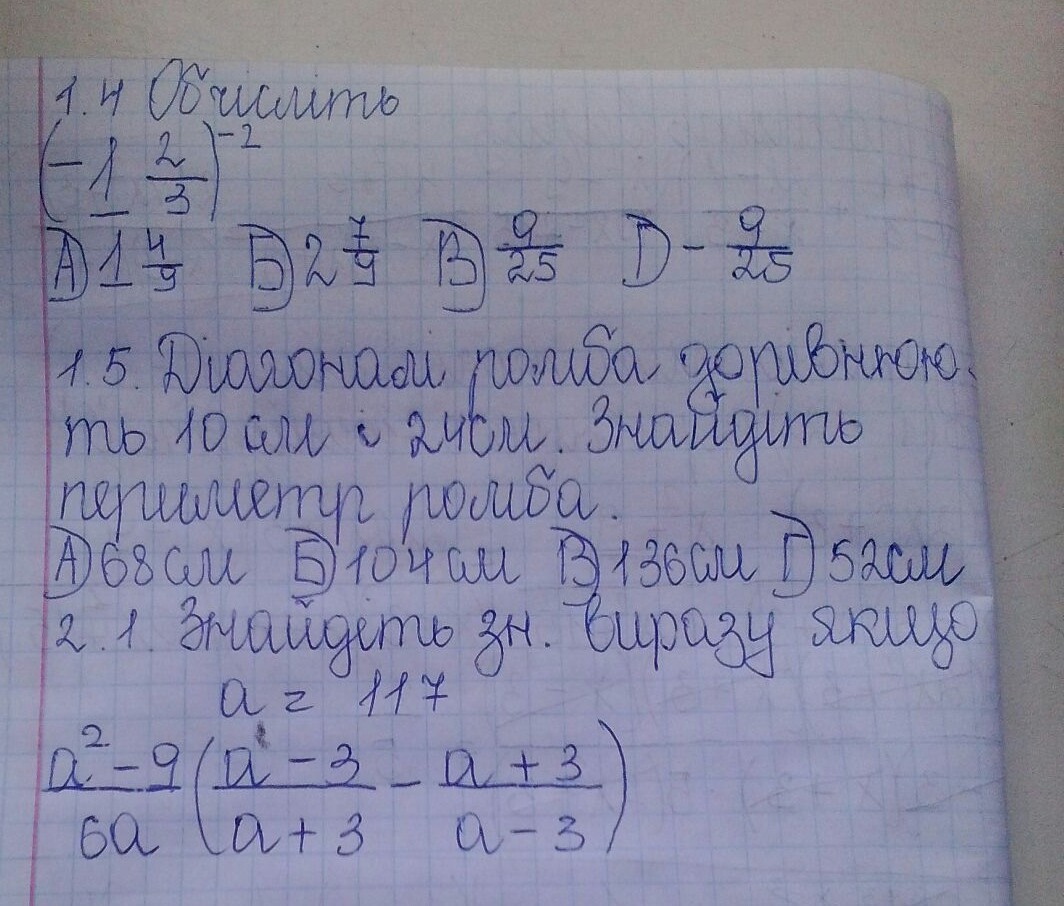 1.4 Обчисліть
(-1 2/3)^-2
А) 1 4/9 Б) 2 7/9 В) 9/25 D - 9/25
1.5. Діагоналі ромба дорівнюю-
ть 10 см і 24 см. Знайдіть
периметр ромба.
А) 68 см Б) 104 см В) 136 см Г) 52 см
2.1. Знайдіть зн. виразу якщо
a = 117
a²-9/6a (a-3/a+3 - a+3/a-3)